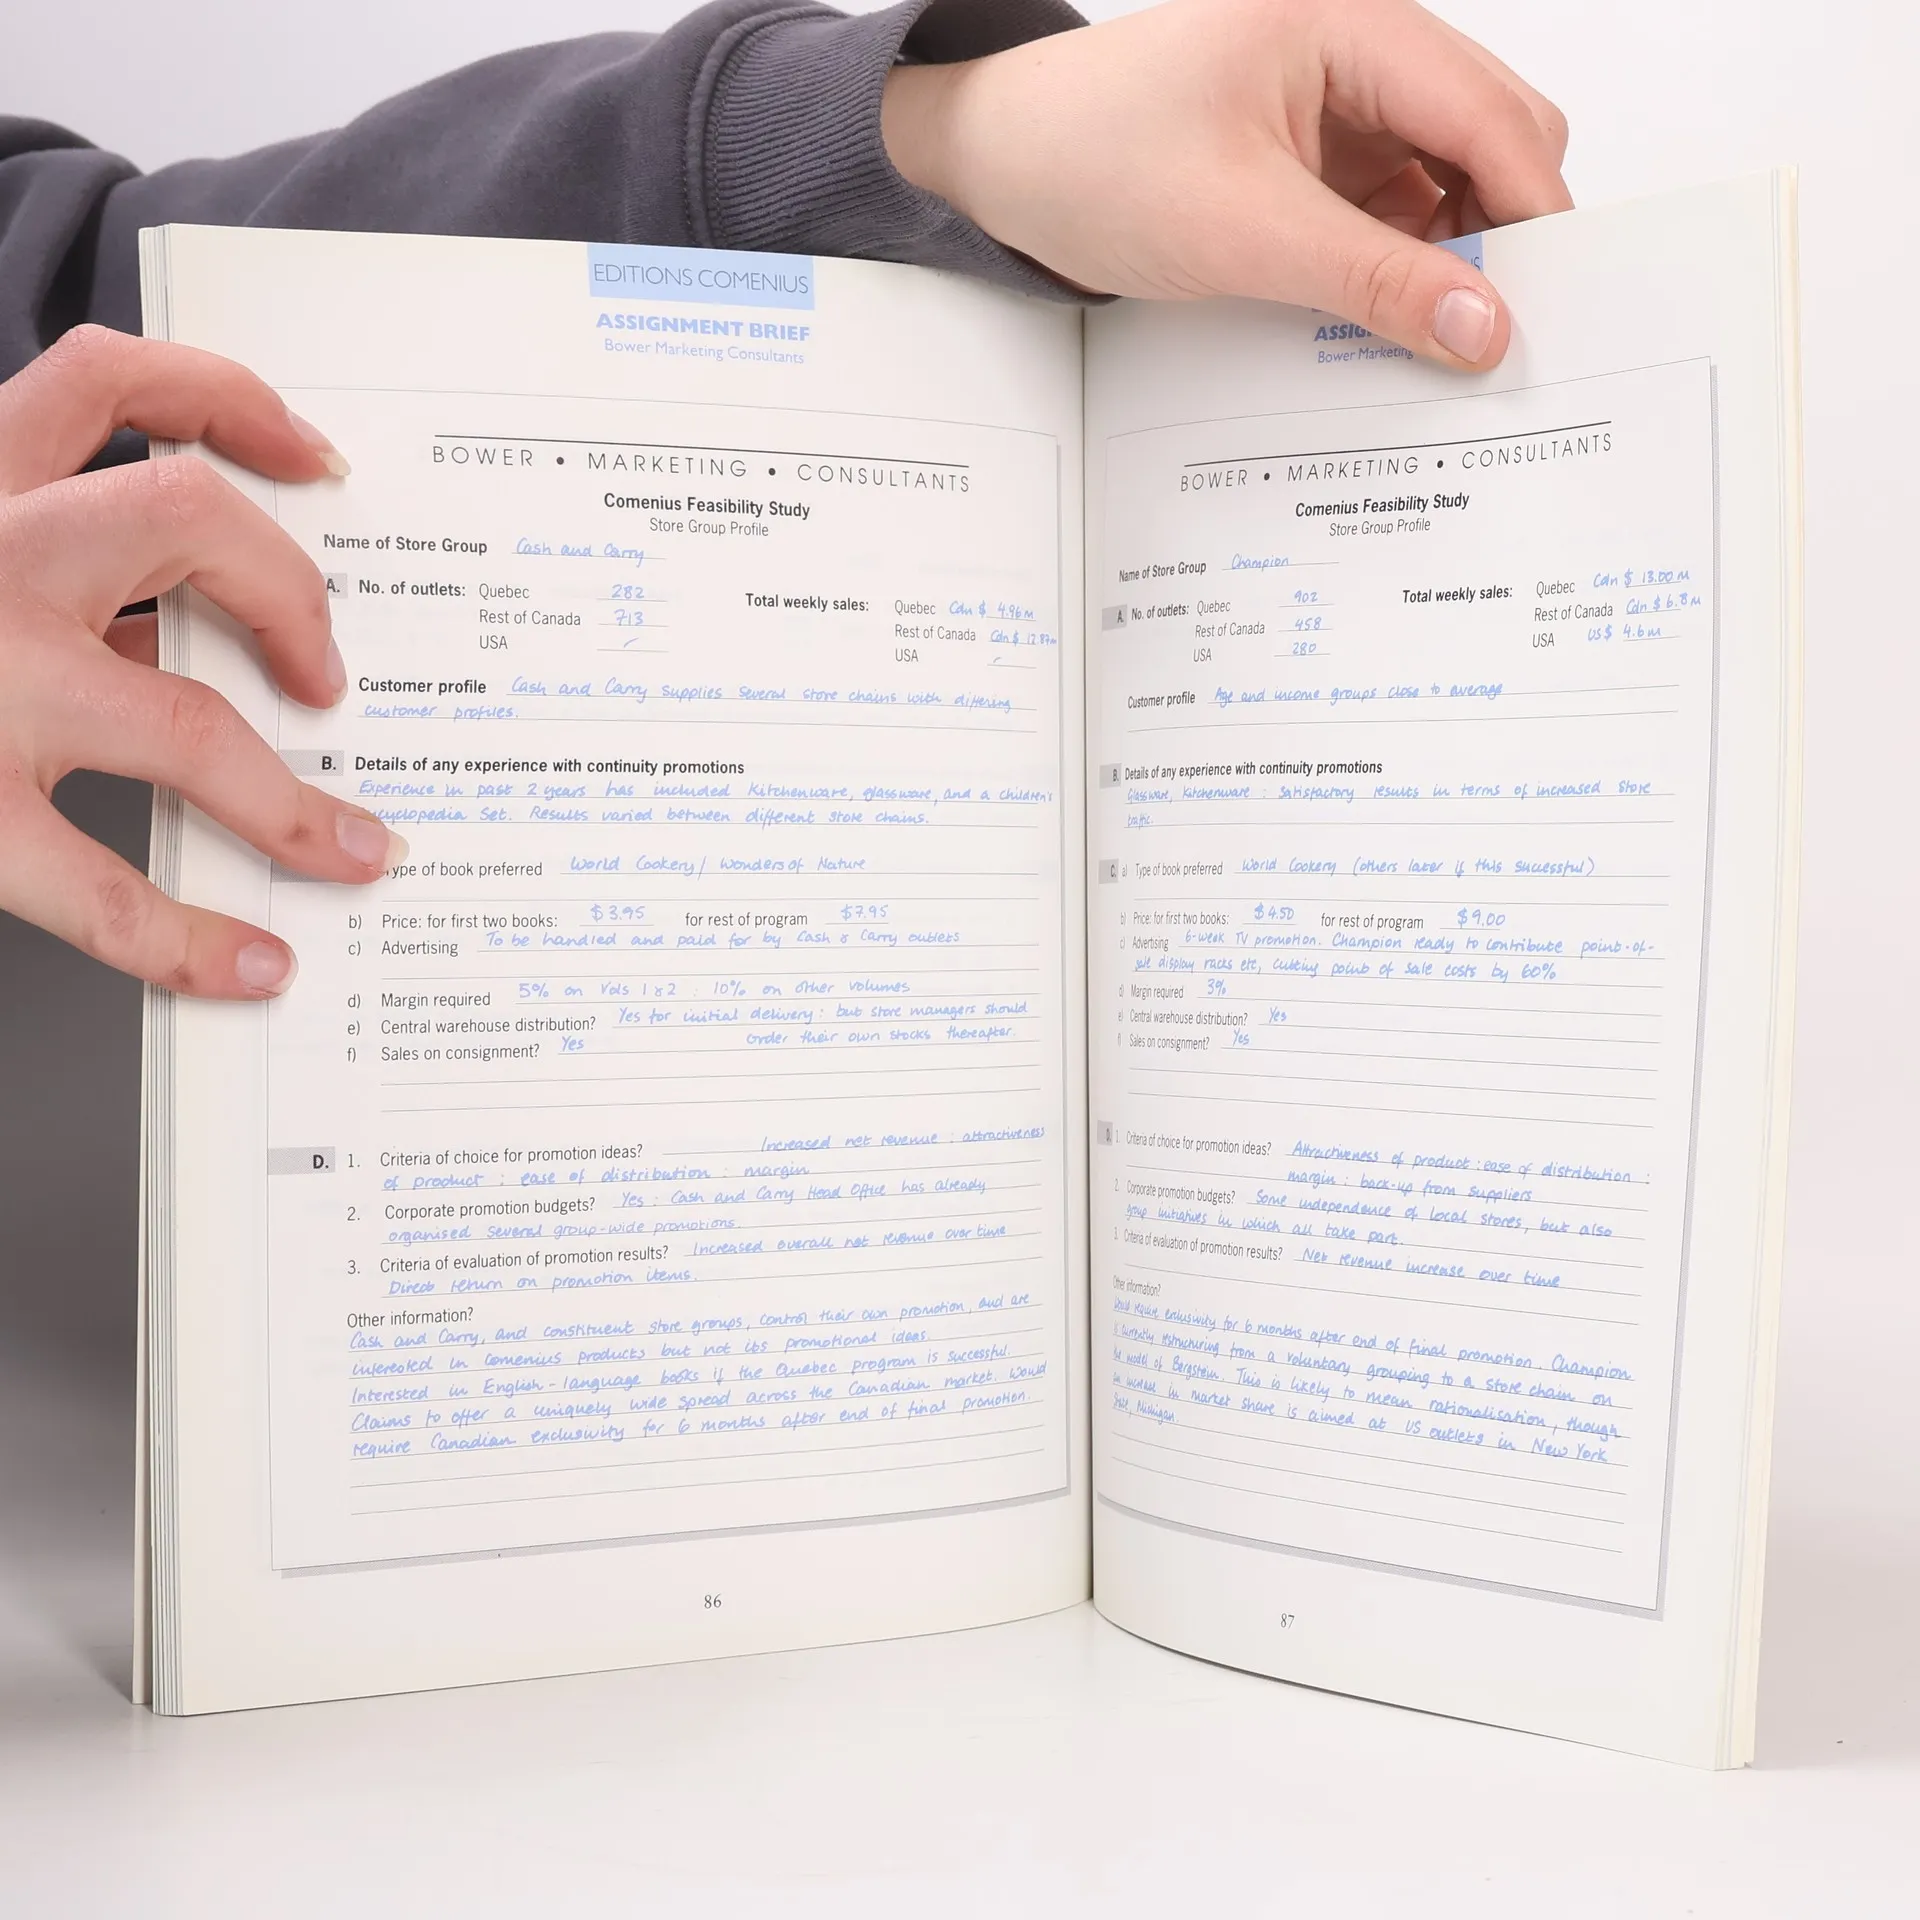 EDITIONS COMENIUS
ASSIGNMENT BRIEF
Bower Marketing Consultants
BOWER • MARKETING • CONSULTANTS
Comenius Feasibility Study
Store Group Profile
Name of Store Group Cash and Carry
A. No. of outlets: Quebec 282
Rest of Canada 713
USA
Total weekly sales: Quebec Cdn $ 4.96m
Rest of Canada Cdn $ 12.87m
USA
Customer profile Cash and Carry supplies several store chains with differing
customer profiles.
B. Details of any experience with continuity promotions
Experience in past 2 years has included kitchenware, glassware, and a children's
set. Results varied between different store chains.
Type of book preferred World Cookery / Wonders of Nature
b) Price: for first two books: $3.95 for rest of program $7.95
c) Advertising To be handled and paid for by Cash & Carry outlets
d) Margin required 5% on Vols 1 & 2 : 10% on other volumes
e) Central warehouse distribution? Yes for initial delivery : but store managers should
order their own stocks thereafter.
f) Sales on consignment? Yes
D. 1. Criteria of choice for promotion ideas? Increased net revenue : attractiveness
of product : ease of distribution : margin
2. Corporate promotion budgets? Yes : Cash and Carry Head Office has already
organised several group-wide promotions.
3. Criteria of evaluation of promotion results? Increased overall net revenue over time
Direct return on promotion items.
Other information?
Cash and Carry, and constituent store groups, control their own promotion, and are
interested in Comenius products but not its promotional ideas.
Interested in English-language books if the Quebec program is successful.
Claims to offer a uniquely wide spread across the Canadian market. Would
require Canadian exclusivity for 6 months after end of final promotion.
86
Bower Marketing
BOWER • MARKETING • CONSULTANTS
Comenius Feasibility Study
Store Group Profile
Name of Store Group Champion
A. No. of outlets: Quebec 902
Rest of Canada 458
USA 280
Total weekly sales: Quebec Cdn $ 13.00 m
Rest of Canada Cdn $ 6.8 m
USA US $ 4.6m
Customer profile Age and income groups close to average
B. Details of any experience with continuity promotions
Glassware, kitchenware : satisfactory results in terms of increased store
traffic.
C. a) Type of book preferred World Cookery (others later if this successful)
b) Price: for first two books: $4.50 for rest of program $9.00
c) Advertising 6-week TV promotion. Champion ready to contribute point-of-
sale display racks etc, cutting point of sale costs by 60%
d) Margin required 3%
e) Central warehouse distribution? Yes
f) Sales on consignment? Yes
D. 1. Criteria of choice for promotion ideas? Attractiveness of product : ease of distribution :
margin : back-up from suppliers
2. Corporate promotion budgets? Some independence of local stores, but also
group initiatives in which all take part.
3. Criteria of evaluation of promotion results? Net revenue increase over time
Other information?
Would require exclusivity for 6 months after end of final promotion. Champion
is currently restructuring from a voluntary grouping to a store chain on
the model of Bergstein. This is likely to mean rationalisation, though
an increase in market share is aimed at US outlets in New York
State, Michigan.
87